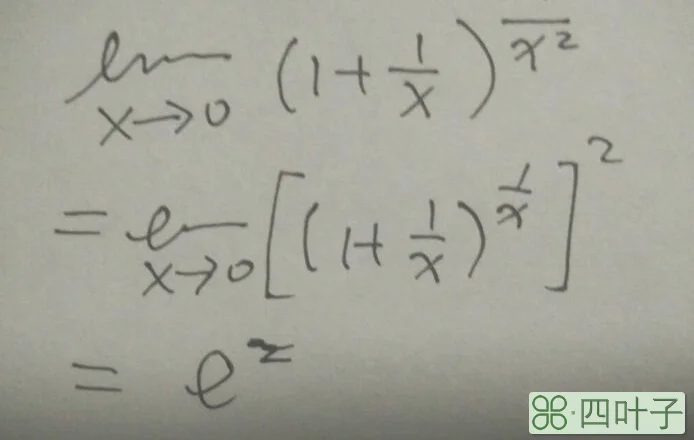 lim x→0 (1+1/x)^(‾/x²)
= lim x→0 [(1+1/x)^(1/x)]²
= e²
四叶子